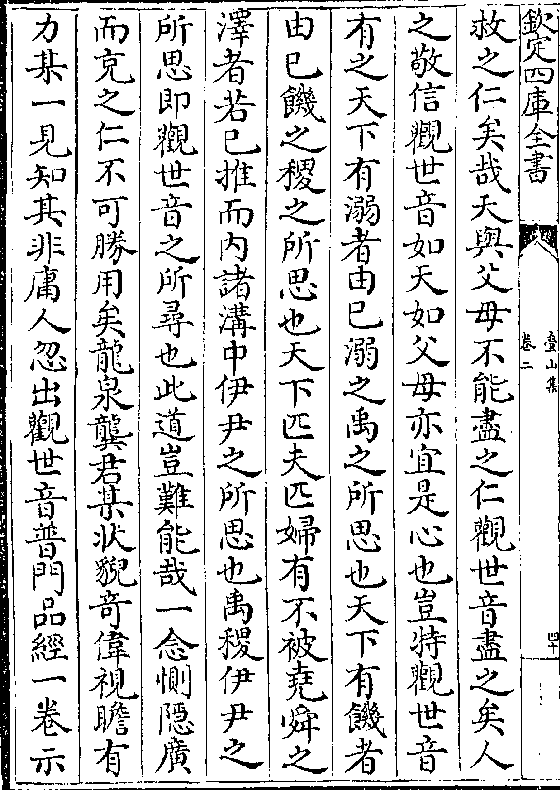 欽定四庫全書
疊山集
卷二
四十
救之仁矣哉天與父母不能盡之仁觀世音盡之矣人
之敬信觀世音如天如父母亦宜是心也豈特觀世音
有之天下有溺者由已溺之禹之所思也天下有饑者
由已饑之稷之所思也天下匹夫匹婦有不被堯舜之
澤者若已推而内諸溝中伊尹之所思也禹稷伊尹之
所思即觀世音之所尋也此道豈難能哉一念惻隠廣
而充之仁不可勝用矣龍泉龔君某狀貎奇偉視瞻有
力某一見知其非庸人忽出觀世音普門品經一卷示